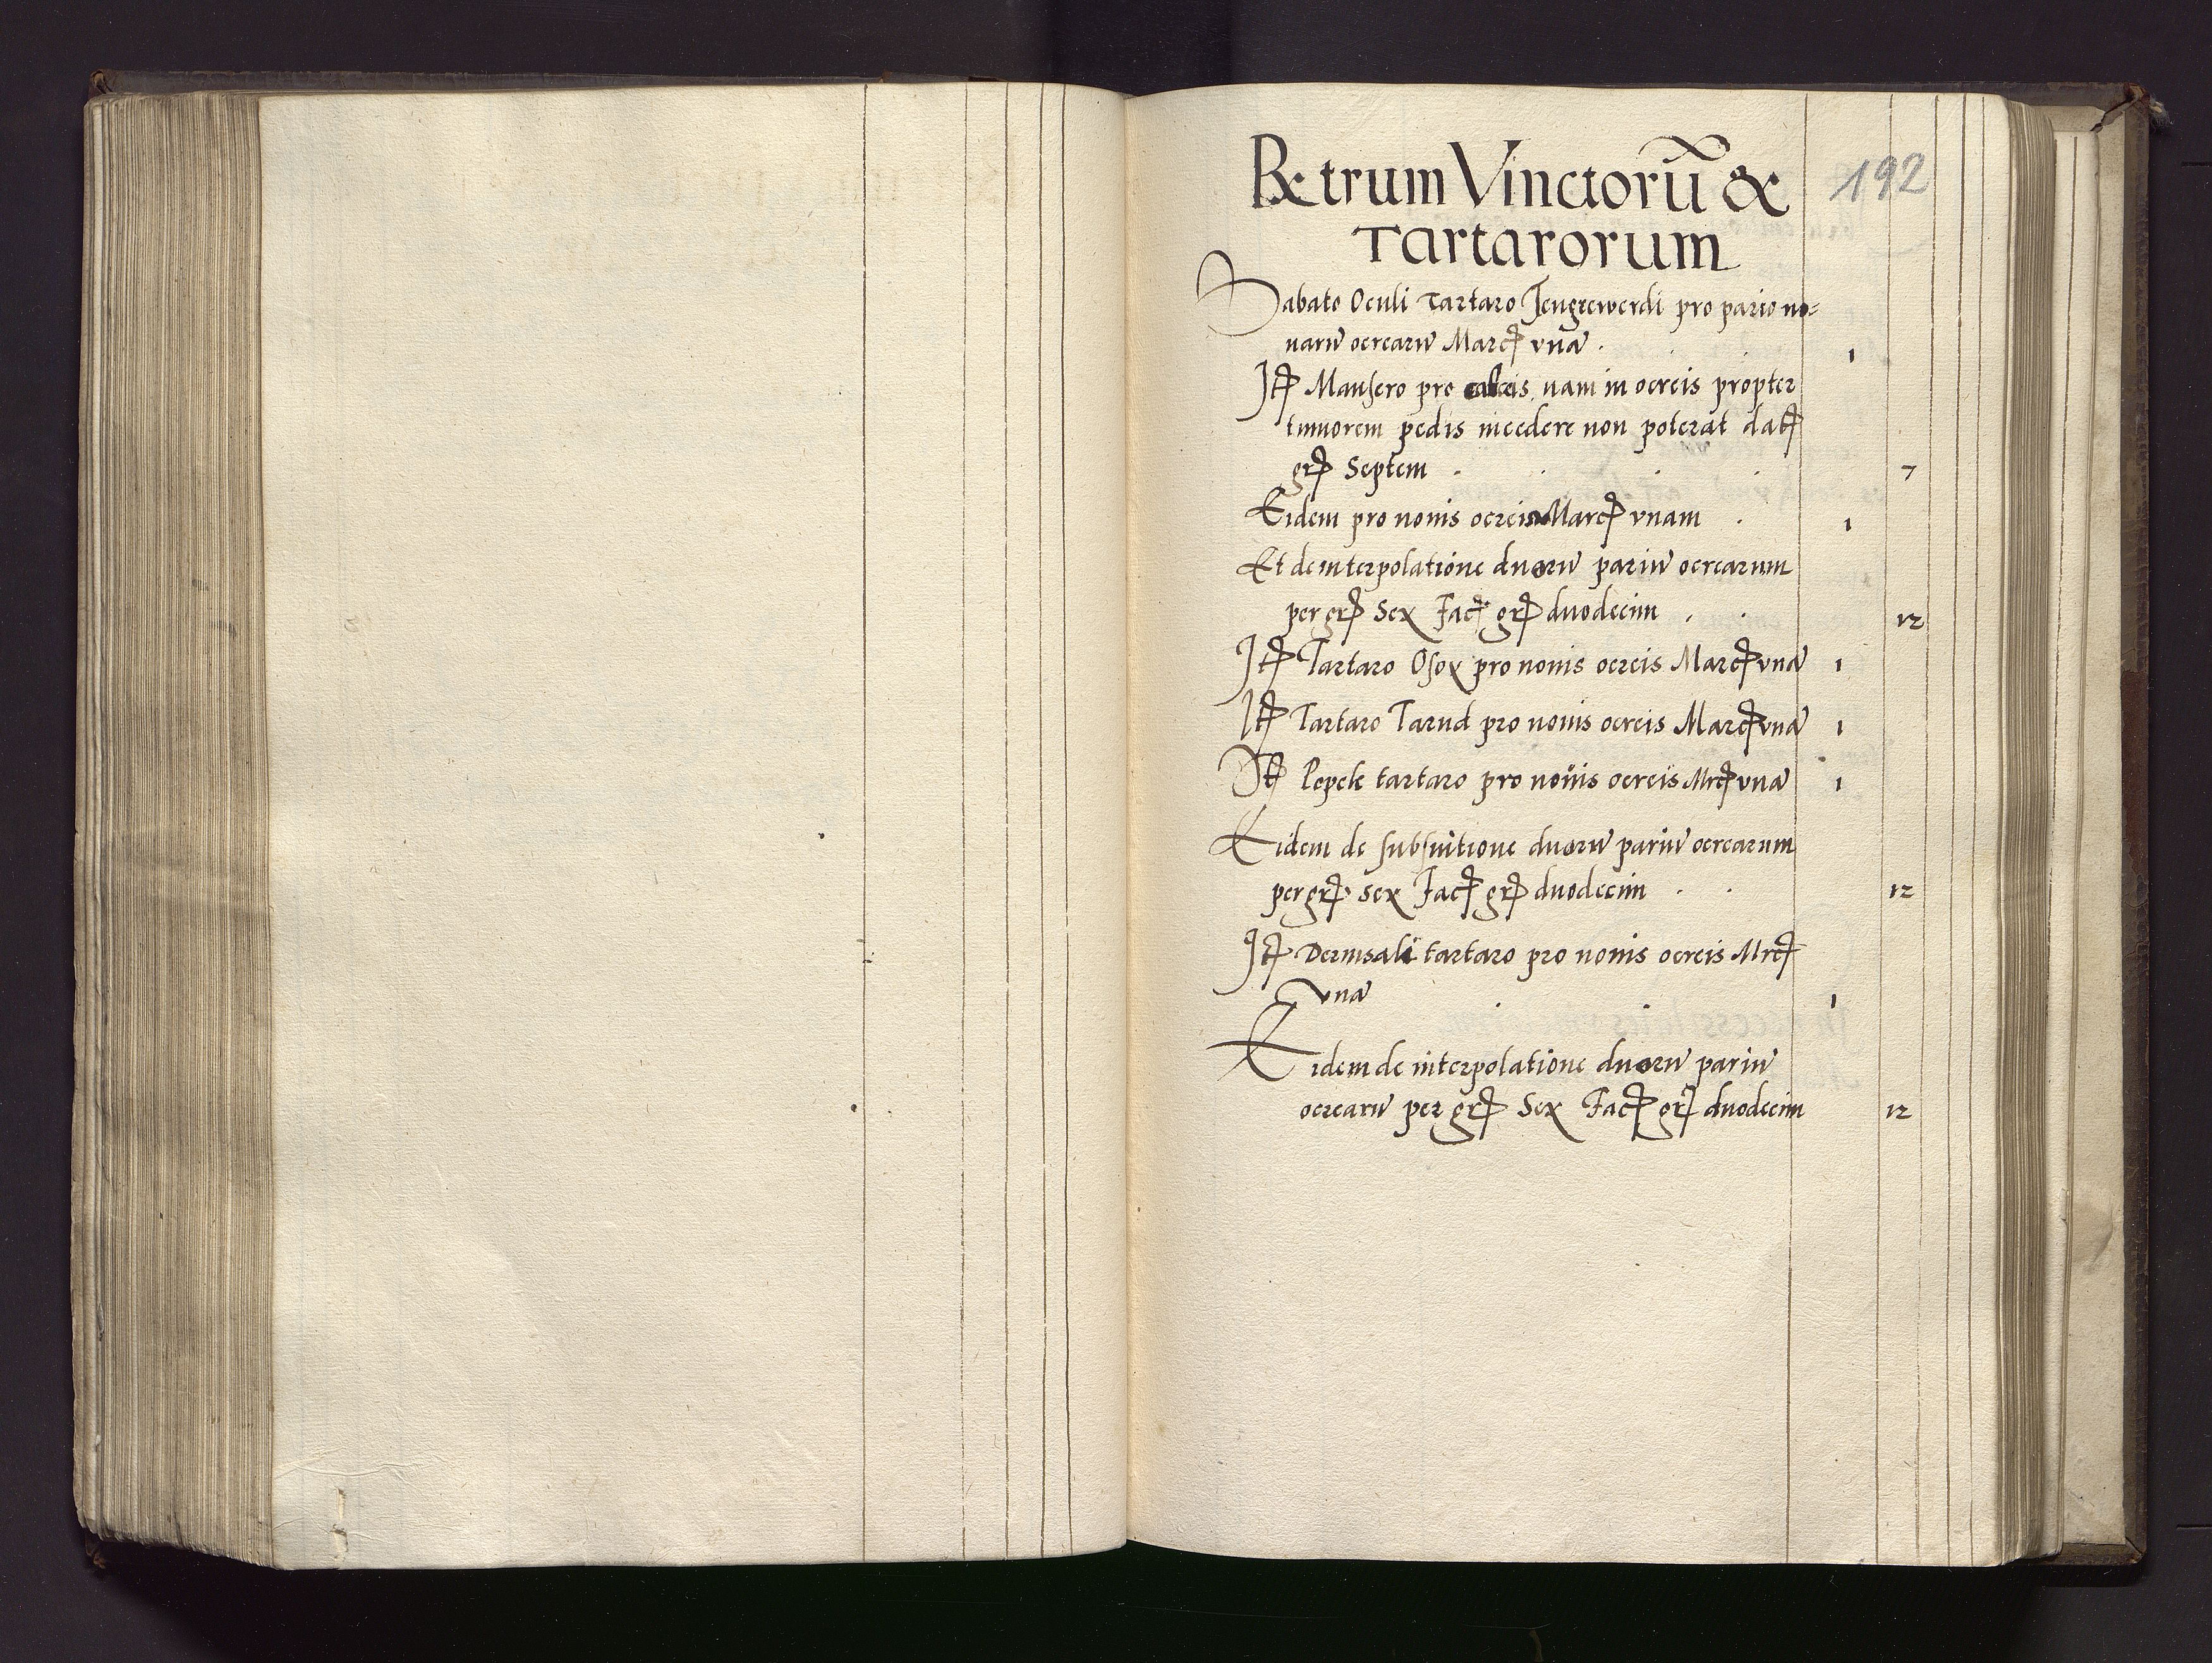 Rectrum Vinctorū &
192
Tartarorum
Sabato Oculi Tartaro Jengrewerdi pro pario no=
uarū ocrearū Marcꝭ vnā . 1
Itꝭ Mansero pro calceis, nam in ocreis propter
tumorem pedis incedere non poterat datꝭ
grꝭ Septem . . . . 7
Eidem pro nouis ocreis Marcꝭ vnam . 1
Et de interpolatione duorū pariū ocrearum
per grꝭ Sex Facꝭ grꝭ duodecim . . 12
Itꝭ Tartaro Osox pro nouis ocreis Marcꝭ vnā 1
Itꝭ Tartaro Tarud pro nouis ocreis Marcꝭ vnā 1
Itꝭ Pepek tartaro pro nouis ocreis Mrcꝭ vnā 1
Eidem de subsuitione duorū pariū ocrearum
per grꝭ sex Facꝭ grꝭ duodecim . . 12
Itꝭ Dermsali tartaro pro nouis ocreis Mrcꝭ
vnā . . 1
Eidem de interpolatione duorū pariū
ocrearū per grꝭ Sex Facꝭ grꝭ duodecim 12